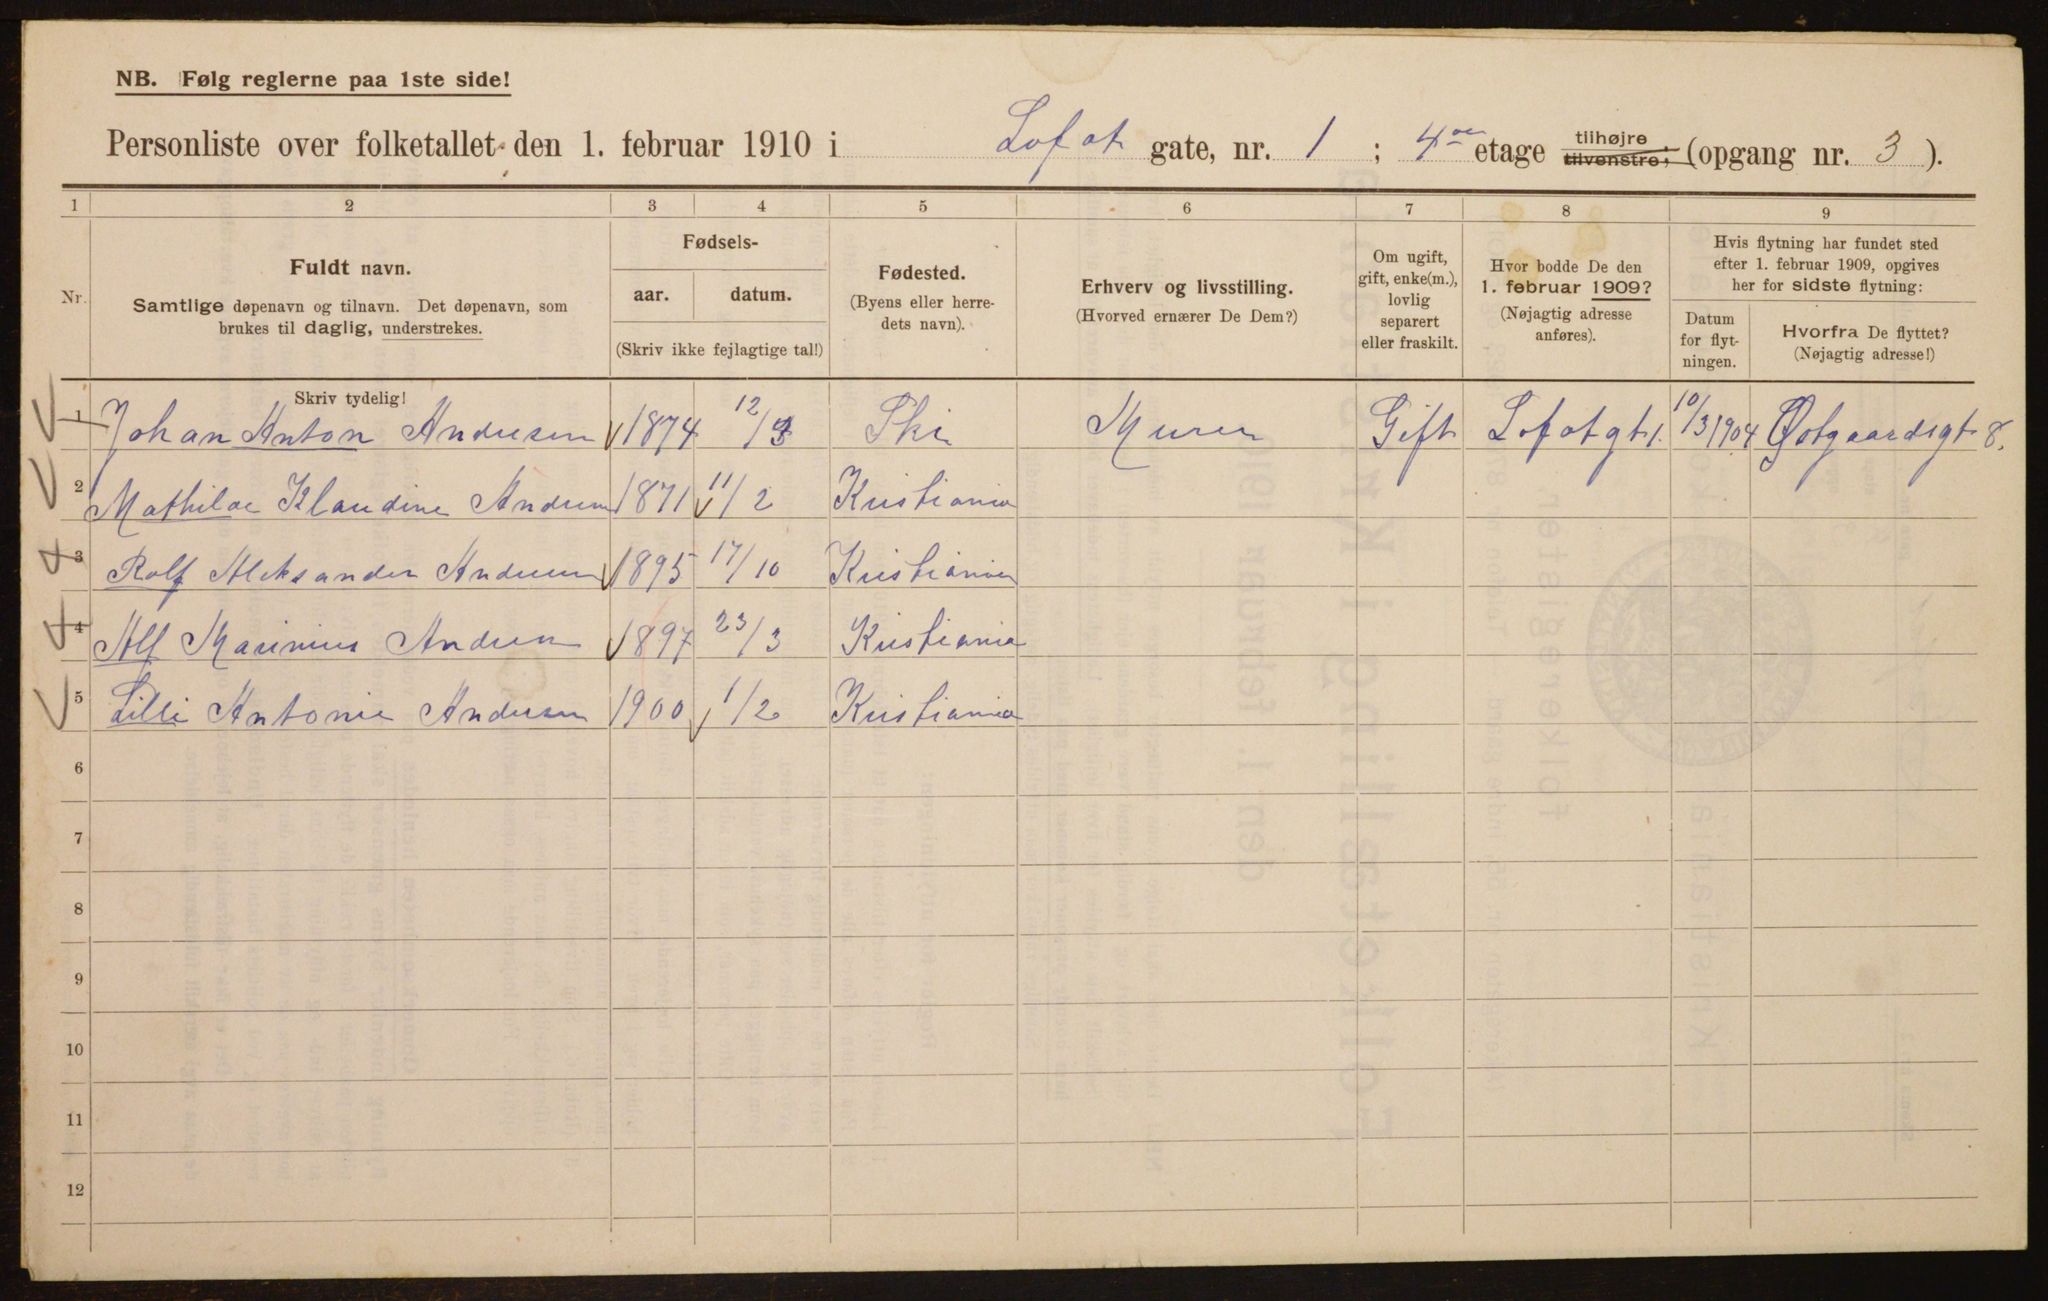 NB. Følg reglerne paa 1ste side!
Personliste over folketallet den 1. februar 1910 i Lofot gate, nr. 1 ; 4de etage tilhøjre, tilvenstre, (opgang nr. 3 ).
1 2 3 4 5 6 7 8 9
Nr.
Fuldt navn.
Samtlige døpenavn og tilnavn. Det døpenavn, som
brukes til daglig, understrekes.
Fødsels-
aar. datum.
(Skriv ikke fejlagtige tal!)
Fødested.
(Byens eller herre-
dets navn).
Erhverv og livsstilling.
(Hvorved ernærer De Dem?)
Om ugift,
gift, enke(m.),
lovlig
separert
eller fraskilt.
Hvor bodde De den
1. februar 1909?
(Nøjagtig adresse
anføres).
Hvis flytning har fundet sted
efter 1. februar 1909, opgives
her for sidste flytning:
Datum
for flyt-
ningen.
Hvorfra De flyttet?
(Nøjagtig adresse!)
Skriv tydelig!
1 Johan Anton Andersen 1874 12/3 Ski Murer Gift Lofotgt 1. 10/3 1904 Østgaardsgt 8.
2 Mathilde Klaudine Andersen 1871 11/2 Kristiania
3 Rolf Aleksander Andersen 1895 17/10 Kristiania
4 Alf Marinius Andersen 1897 23/3 Kristiania
5 Lilli Antonie Andersen 1900 1/2 Kristiania
6
7
8
9
10
11
12